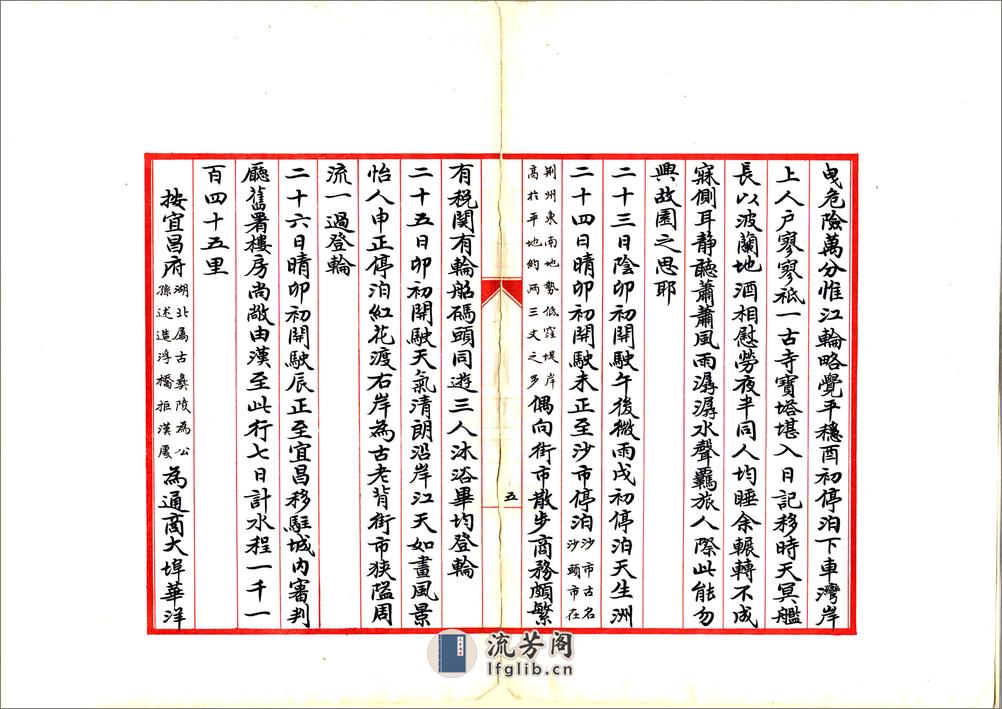 曳危險萬分惟江輪略覺平穩酉初停泊下車灣岸
上人戶寥寥祇一古寺寶塔堪入日記移時天冥艦
長以波蘭地酒相慰勞夜半同人均睡余輾轉不成
寐側耳靜聽蕭蕭風雨潺潺水聲羈旅人際此能勿
興故園之思耶
二十三日陰卯初開駛午後微雨戌初停泊天生洲
二十四日晴卯初開駛未正至沙市停泊沙市古名沙頭市在
荆州東南地勢低窪堤岸高於平地約兩三丈之多偶向街市散步商務頗繁
五
有税関有輪船碼頭同遊三人沐浴畢均登輪
二十五日卯初開駛天氣清朗沿岸江天如畫風景
怡人申正停泊紅花渡右岸為古老背街市狹隘周
流一過登輪
二十六日晴卯初開駛辰正至宜昌移駐城內審判
廳舊署樓房尚敞由漢至此行七日計水程一千一
百四十五里
按宜昌府湖北属古彝陵為公孫述造浮橋拒漢處為通商大埠華洋
流芳阁
lfglib.cn